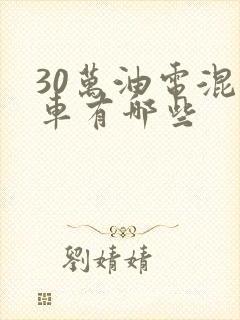 30萬油電混
車有哪些
劉婧婧